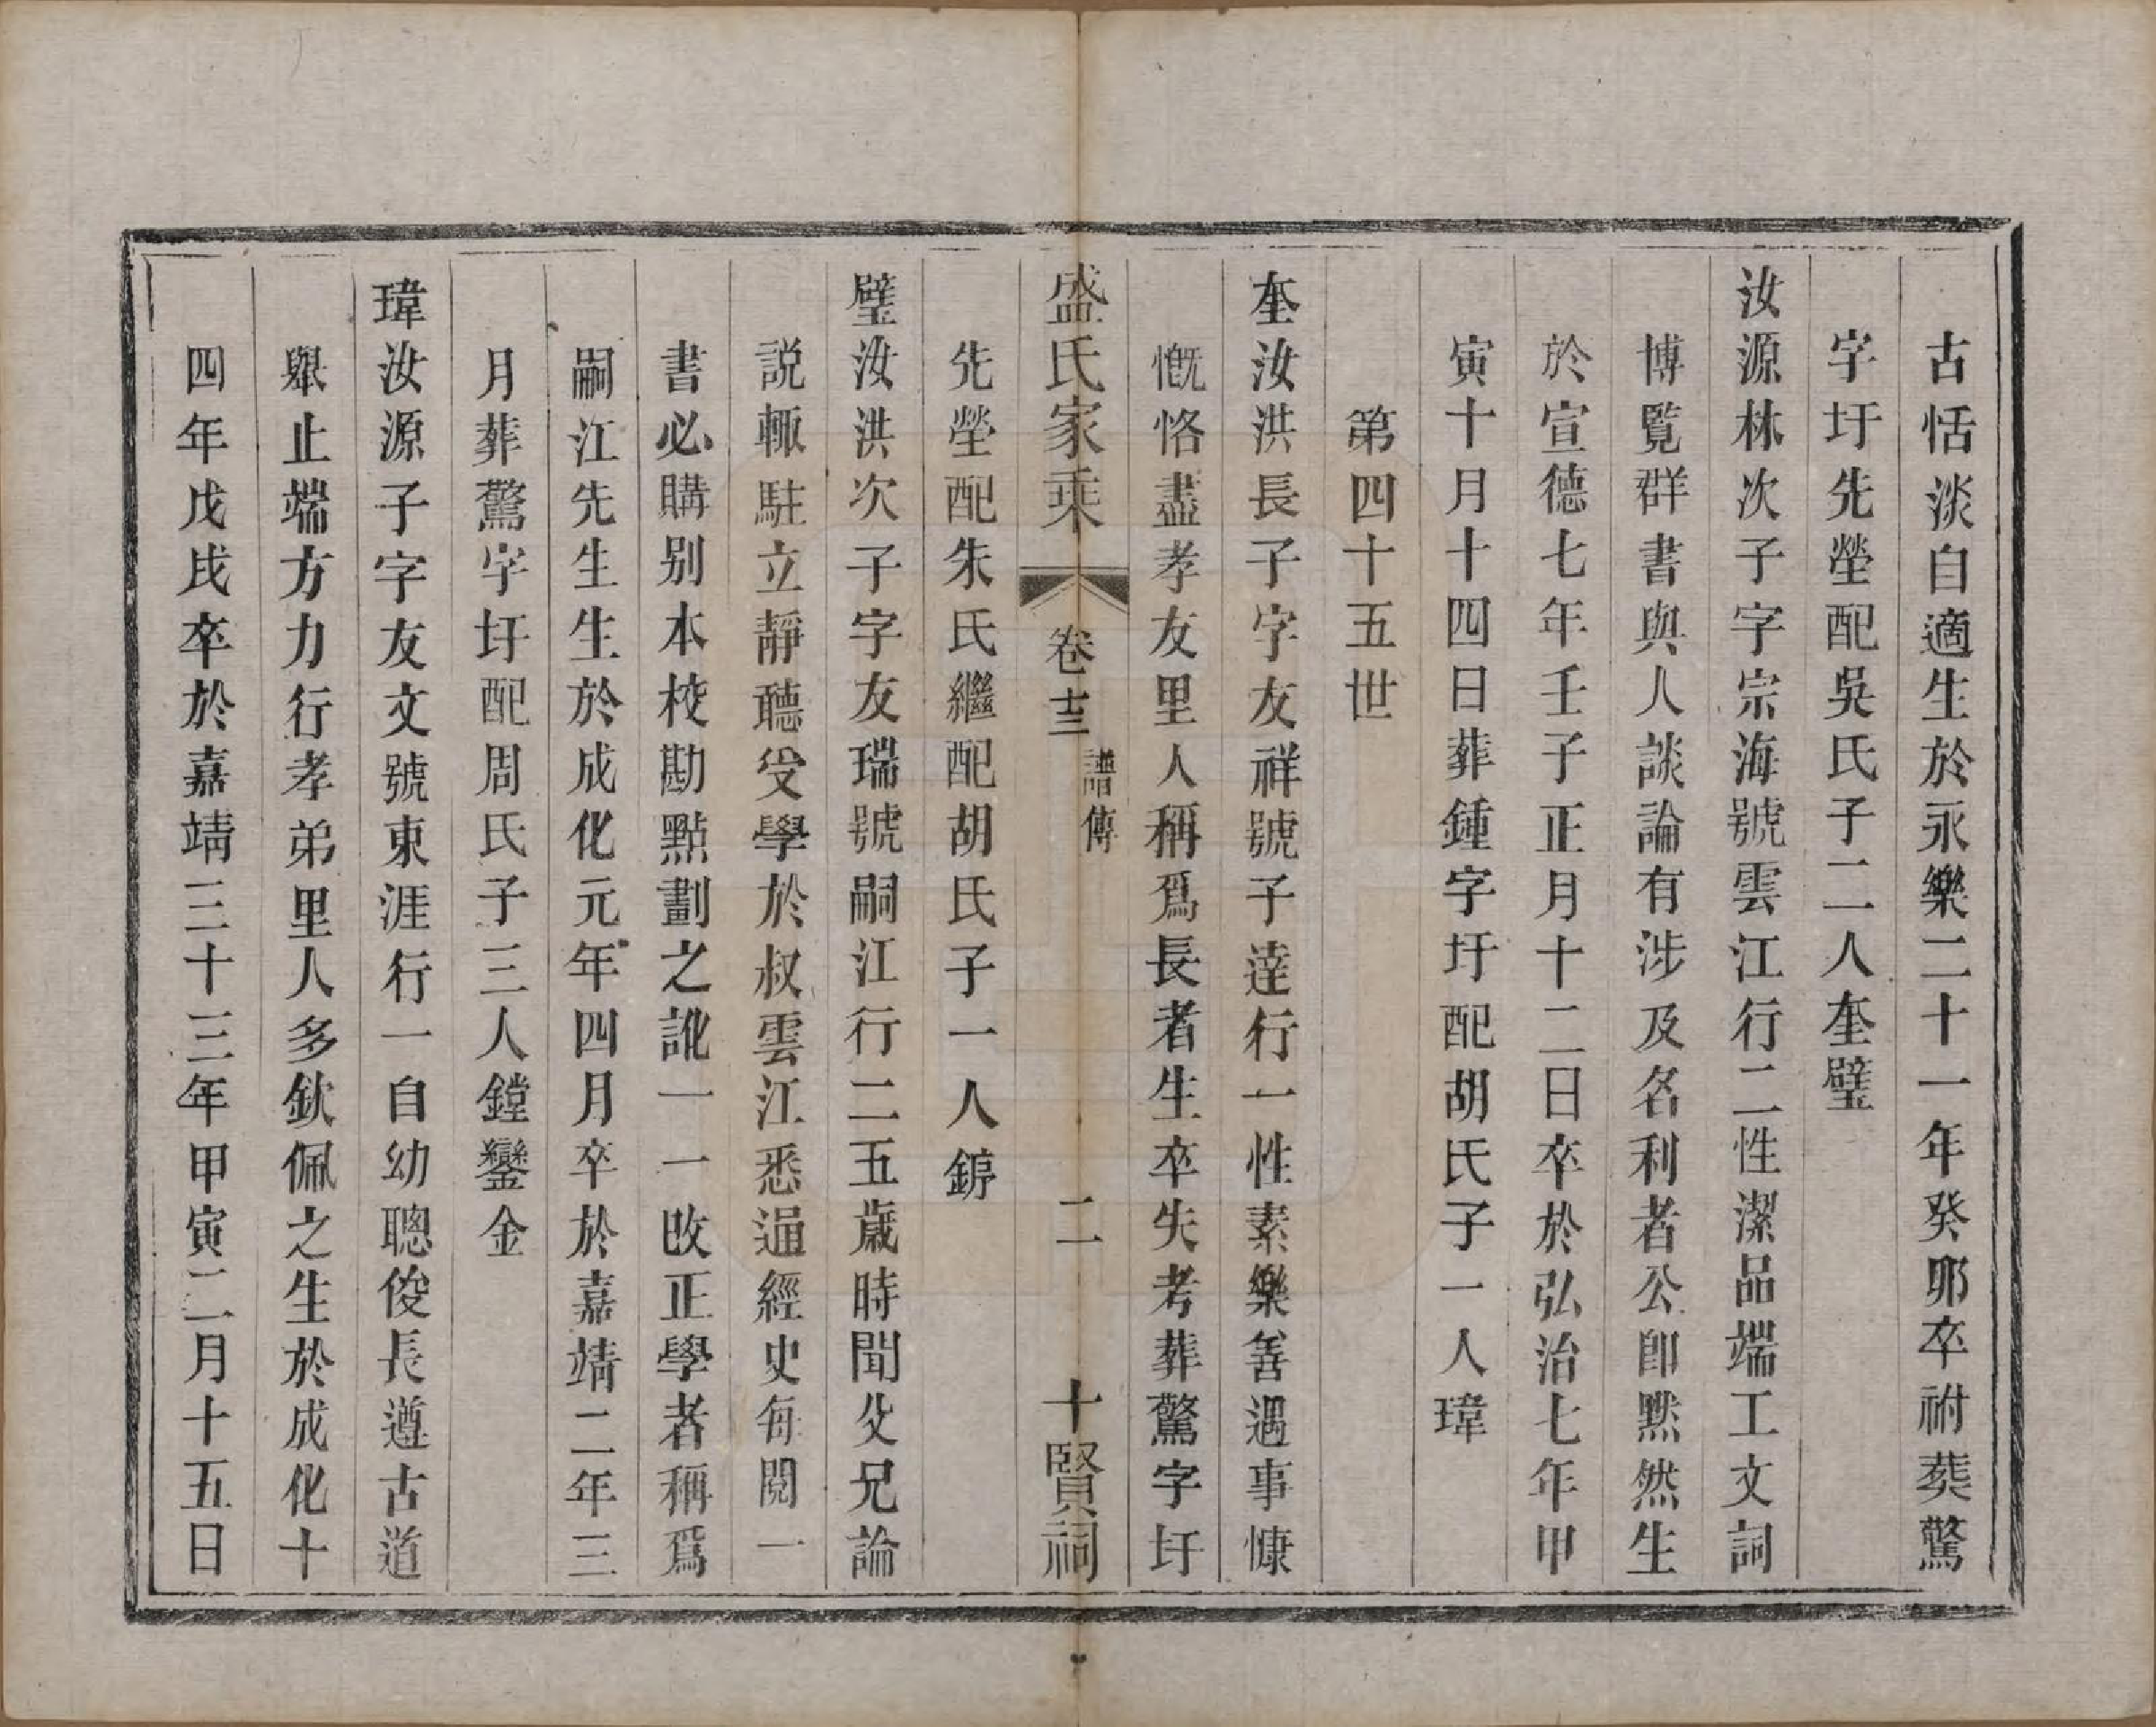 古恬淡自適生於永樂二十一年癸卯卒祔葬驚
字圩先塋配吳氏子二人奎璧
汝源林次子字宗海號雲江行二性潔品端工文詞
博覽群書與人談論有涉及名利者公卽默然生
於宣德七年壬子正月十二日卒於弘治七年甲
寅十月十四日葬鍾字圩配胡氏子一人瑋
第四十五世
奎汝洪長子字友祥號子達行一性素樂善遇事慷
慨恪盡孝友里人稱爲長者生卒失考葬驚字圩
盛氏家乘 卷十三 譜傳 二 十賢祠
先塋配朱氏繼配胡氏子一人錞
璧汝洪次子字友瑞號嗣江行二五歲時聞父兄論
說輒駐立靜聽受學於叔雲江悉通經史每閱一
書必購别本校勘點劃之訛一一改正學者稱爲
嗣江先生生於成化元年四月卒於嘉靖二年三
月葬驚字圩配周氏子三人鏜鑾金
瑋汝源子字友文號東涯行一自幼聰俊長遵古道
舉止端方力行孝弟里人多欽佩之生於成化十
四年戊戌卒於嘉靖三十三年甲寅二月十五日